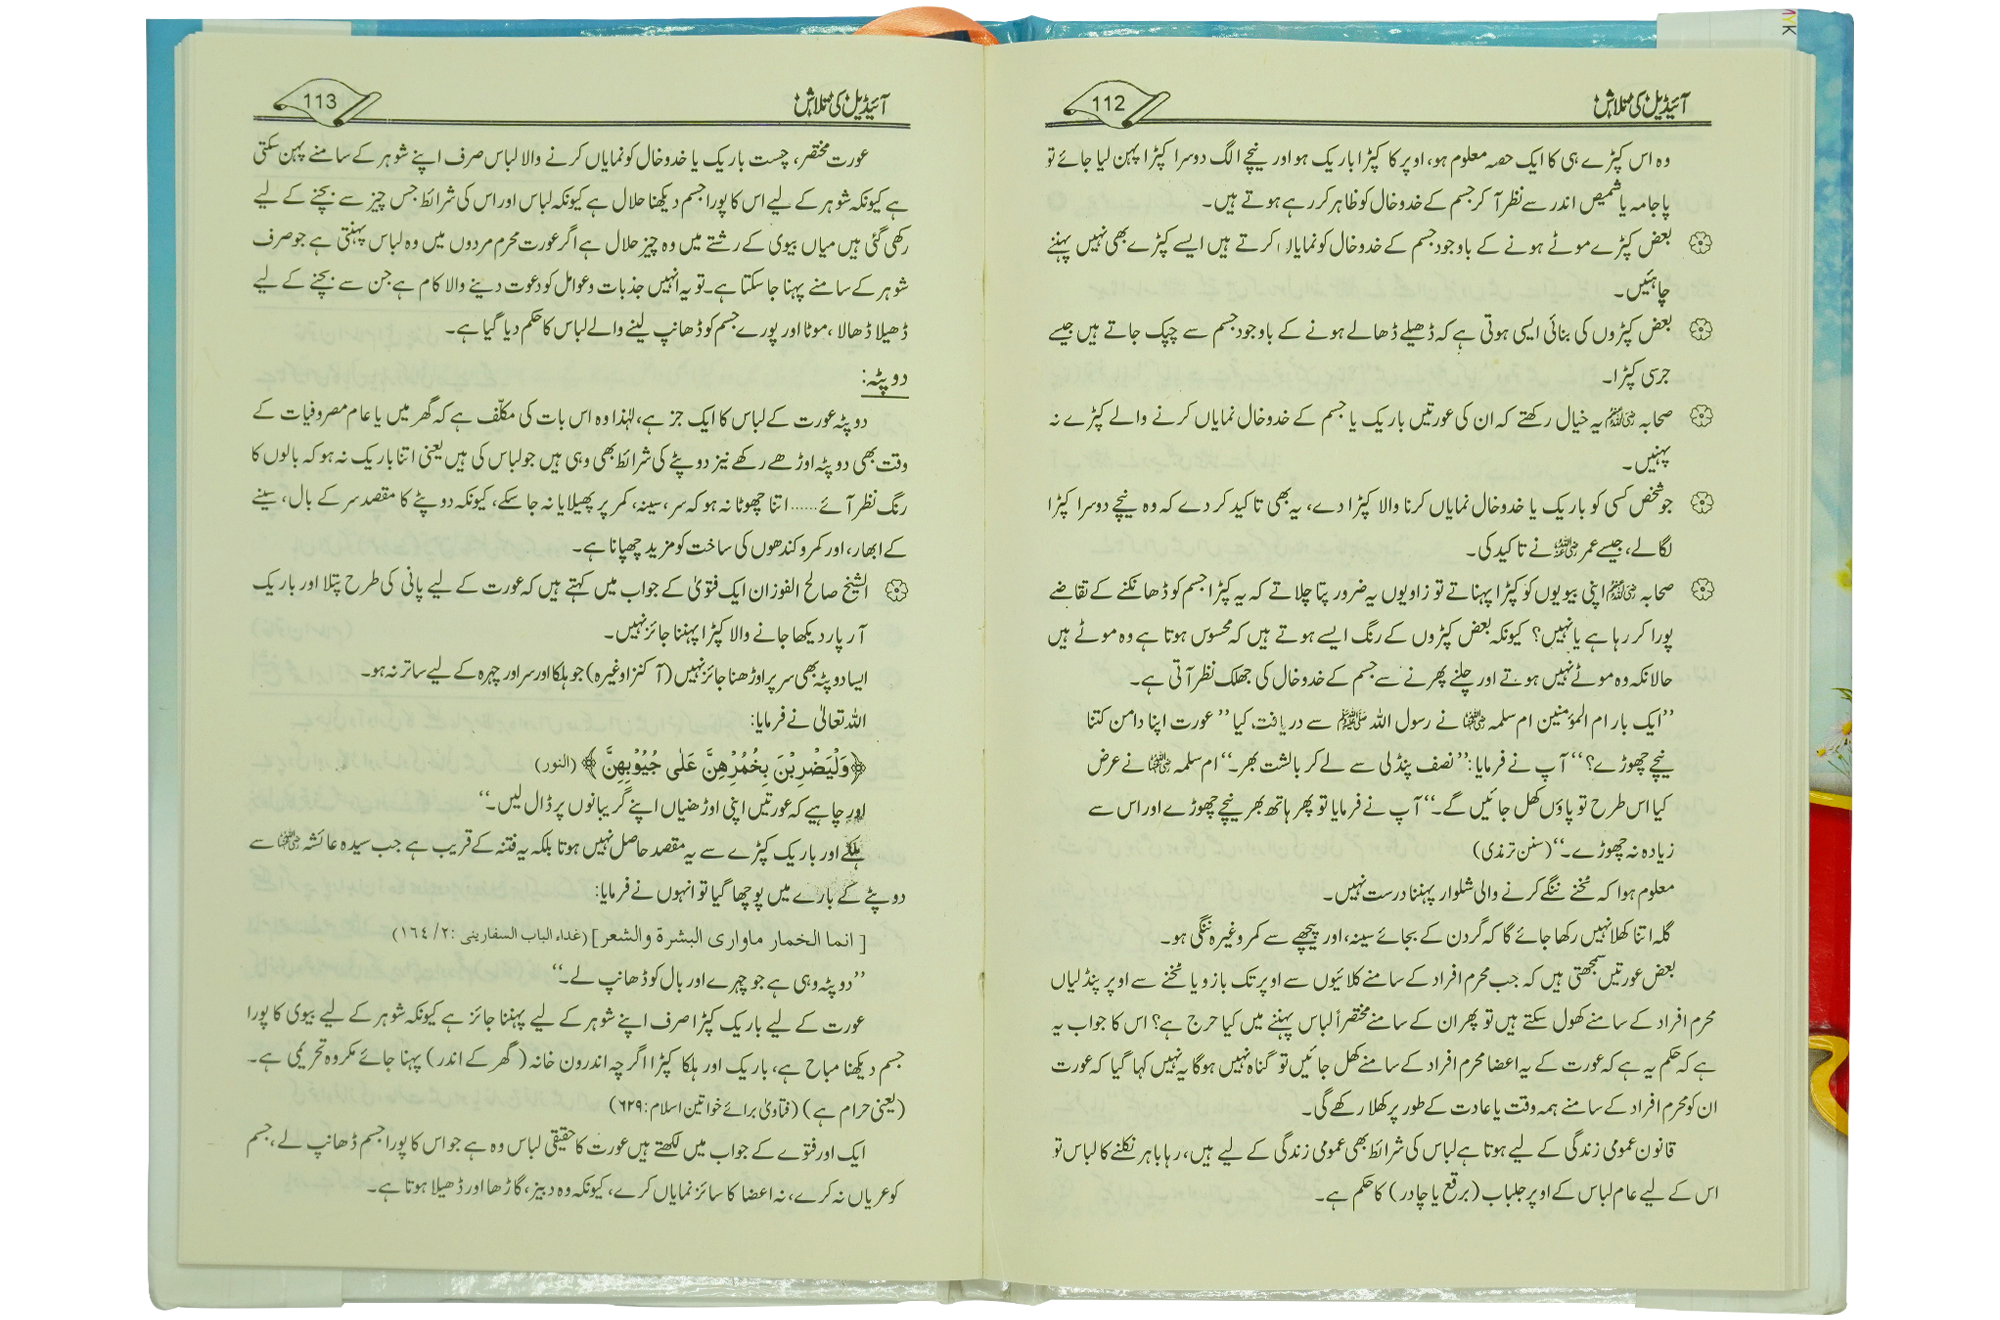 آئیڈیل کی تلاش
112
وہ اس کپڑے ہی کا ایک حصہ معلوم ہو، اوپر کا کپڑا باریک ہو اور نیچے الگ دوسرا کپڑا پہن لیا جائے تو
پاجامہ یا شمیص اندر سے نظر آ کر جسم کے خدوخال کو ظاہر کر رہے ہوتے ہیں۔
بعض کپڑے موٹے ہونے کے باوجود جسم کے خدوخال کو نمایاں کرتے ہیں ایسے کپڑے بھی نہیں پہننے
چاہئیں۔
بعض کپڑوں کی بنائی ایسی ہوتی ہے کہ ڈھیلے ڈھالے ہونے کے باوجود جسم سے چپک جاتے ہیں جیسے
جرسی کپڑا۔
صحابہ رضی اللہ عنہم یہ خیال رکھتے کہ ان کی عورتیں باریک یا جسم کے خدوخال نمایاں کرنے والے کپڑے نہ
پہنیں۔
جو شخص کسی کو باریک یا خدوخال نمایاں کرنا والا کپڑا دے، یہ بھی تاکید کر دے کہ وہ نیچے دوسرا کپڑا
لگا لے، جیسے عمر رضی اللہ عنہ نے تاکید کی۔
صحابہ رضی اللہ عنہم اپنی بیویوں کو کپڑا پہناتے تو زاویوں یہ ضرور پتا چلاتے کہ یہ کپڑا جسم کو ڈھانکنے کے تقاضے
پورا کر رہا ہے یا نہیں؟ کیونکہ بعض کپڑوں کے رنگ ایسے ہوتے ہیں کہ محسوس ہوتا ہے وہ موٹے ہیں
حالانکہ وہ موٹے نہیں ہوتے اور چلنے پھرنے سے جسم کے خدوخال کی جھلک نظر آتی ہے۔
”ایک بار ام المؤمنین ام سلمہ رضی اللہ عنہا نے رسول اللہ ﷺ سے دریافت کیا ”عورت اپنا دامن کتنا
نیچے چھوڑے؟“ آپ نے فرمایا: ”نصف پنڈلی سے لے کر بالشت بھر۔“ ام سلمہ رضی اللہ عنہا نے عرض
کیا اس طرح تو پاؤں کھل جائیں گے۔“ آپ نے فرمایا تو پھر ہاتھ بھر نیچے چھوڑے اور اس سے
زیادہ نہ چھوڑے۔“ (سنن ترمذی)
معلوم ہوا کہ ٹخنے ننگے کرنے والی شلوار پہننا درست نہیں۔
گلہ اتنا کھلا نہیں رکھا جائے گا کہ گردن کے بجائے سینہ، اور پیچھے سے کمر وغیرہ ننگی ہو۔
بعض عورتیں سمجھتی ہیں کہ جب محرم افراد کے سامنے کلائیوں سے اوپر تک بازو یا ٹخنے سے اوپر پنڈلیاں
محرم افراد کے سامنے کھول سکتے ہیں تو پھر ان کے سامنے مختصراً لباس پہننے میں کیا حرج ہے؟ اس کا جواب یہ
ہے کہ حکم یہ ہے کہ عورت کے یہ اعضا محرم افراد کے سامنے کھل جائیں تو گناہ نہیں ہوگا یہ نہیں کہا گیا کہ عورت
ان کو محرم افراد کے سامنے ہمہ وقت یا عادت کے طور پر کھلا رکھے گی۔
قانون عمومی زندگی کے لیے ہوتا ہے لباس کی شرائط بھی عمومی زندگی کے لیے ہیں، رہا باہر نکلنے کا لباس تو
اس کے لیے عام لباس کے اوپر جلباب (برقع یا چادر) کا حکم ہے۔
آئیڈیل کی تلاش
113
عورت مختصر، چست باریک یا خدوخال کو نمایاں کرنے والا لباس صرف اپنے شوہر کے سامنے پہن سکتی
ہے کیونکہ شوہر کے لیے اس کا پورا جسم دیکھنا حلال ہے کیونکہ لباس اور اس کی شرائط جس چیز سے بچنے کے لیے
رکھی گئی ہیں میاں بیوی کے رشتے میں وہ چیز حلال ہے اگر عورت محرم مردوں میں وہ لباس پہنتی ہے جو صرف
شوہر کے سامنے پہنا جا سکتا ہے۔ تو یہ انہیں جذبات و عوامل کو دعوت دینے والا کام ہے جن سے بچنے کے لیے
ڈھیلا ڈھالا، موٹا اور پورے جسم کو ڈھانپ لینے والے لباس کا حکم دیا گیا ہے۔
دوپٹہ:
دوپٹہ عورت کے لباس کا ایک جز ہے، لہٰذا وہ اس بات کی مکلّف ہے کہ گھر میں یا عام مصروفیات کے
وقت بھی دوپٹہ اوڑھے رکھے نیز دوپٹے کی شرائط بھی وہی ہیں جو لباس کی ہیں یعنی اتنا باریک نہ ہو کہ بالوں کا
رنگ نظر آئے...... اتنا چھوٹا نہ ہو کہ سر، سینہ، کمر پر پھیلایا نہ جا سکے، کیونکہ دوپٹے کا مقصد سر کے بال، سینے
کے ابھار، اور کمر و کندھوں کی ساخت کو مزید چھپانا ہے۔
الشیخ صالح الفوزان ایک فتویٰ کے جواب میں کہتے ہیں کہ عورت کے لیے پانی کی طرح پتلا اور باریک
آر پار دیکھا جانے والا کپڑا پہننا جائز نہیں۔
ایسا دوپٹہ بھی سر پر اوڑھنا جائز نہیں (آ کنزا وغیرہ) جو ہلکا اور سر اور چہرہ کے لیے ساتر نہ ہو۔
اللہ تعالیٰ نے فرمایا:
﴿وَلْيَضْرِبْنَ بِخُمُرِهِنَّ عَلٰى جُيُوْبِهِنَّ﴾ (النور)
اور چاہیے کہ عورتیں اپنی اوڑھنیاں اپنے گریبانوں پر ڈال لیں۔“
ہلکے اور باریک کپڑے سے یہ مقصد حاصل نہیں ہوتا بلکہ یہ فتنہ کے قریب ہے جب سیدہ عائشہ رضی اللہ عنہا سے
دوپٹے کے بارے میں پوچھا گیا تو انہوں نے فرمایا:
[انما الخمار ماواری البشرة والشعر] (غذاء الباب السفارینی :۲/۱٦٤)
”دوپٹہ وہی ہے جو چہرے اور بال کو ڈھانپ لے۔“
عورت کے لیے باریک کپڑا صرف اپنے شوہر کے لیے پہننا جائز ہے کیونکہ شوہر کے لیے بیوی کا پورا
جسم دیکھنا مباح ہے، باریک اور ہلکا کپڑا اگرچہ اندرون خانہ (گھر کے اندر) پہنا جائے مکروہ تحریمی ہے۔
(یعنی حرام ہے) (فتاویٰ برائے خواتین اسلام:۶۲۹)
ایک اور فتوے کے جواب میں لکھتے ہیں عورت کا حقیقی لباس وہ ہے جو اس کا پورا جسم ڈھانپ لے، جسم
کو عریاں نہ کرے، نہ اعضا کا سائز نمایاں کرے، کیونکہ وہ دبیز، گاڑھا اور ڈھیلا ہوتا ہے۔